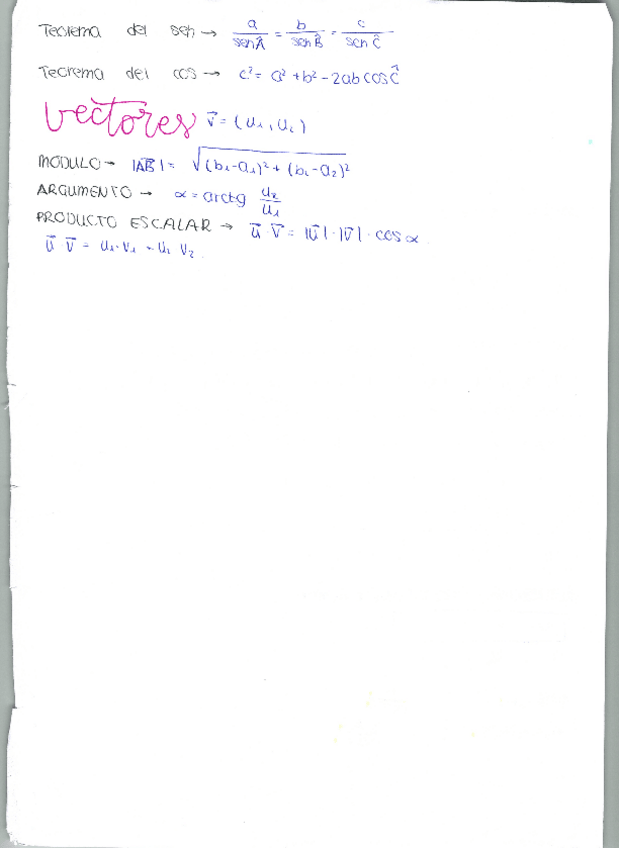 Teorema del sen → a/senÂ = b/senB̂ = c/senĈ
Teorema del cos → c² = a² + b² - 2ab cosĈ
vectores v⃗ = (u₁, u₂)
MÓDULO → |AB⃗| = √(b₁-a₁)² + (b₂-a₂)²
ARGUMENTO → α = arctg u₂/u₁
PRODUCTO ESCALAR → u⃗ · v⃗ = |u⃗| · |v⃗| · cos α
u⃗ · v⃗ = u₁ · v₁ - u₂ v₂